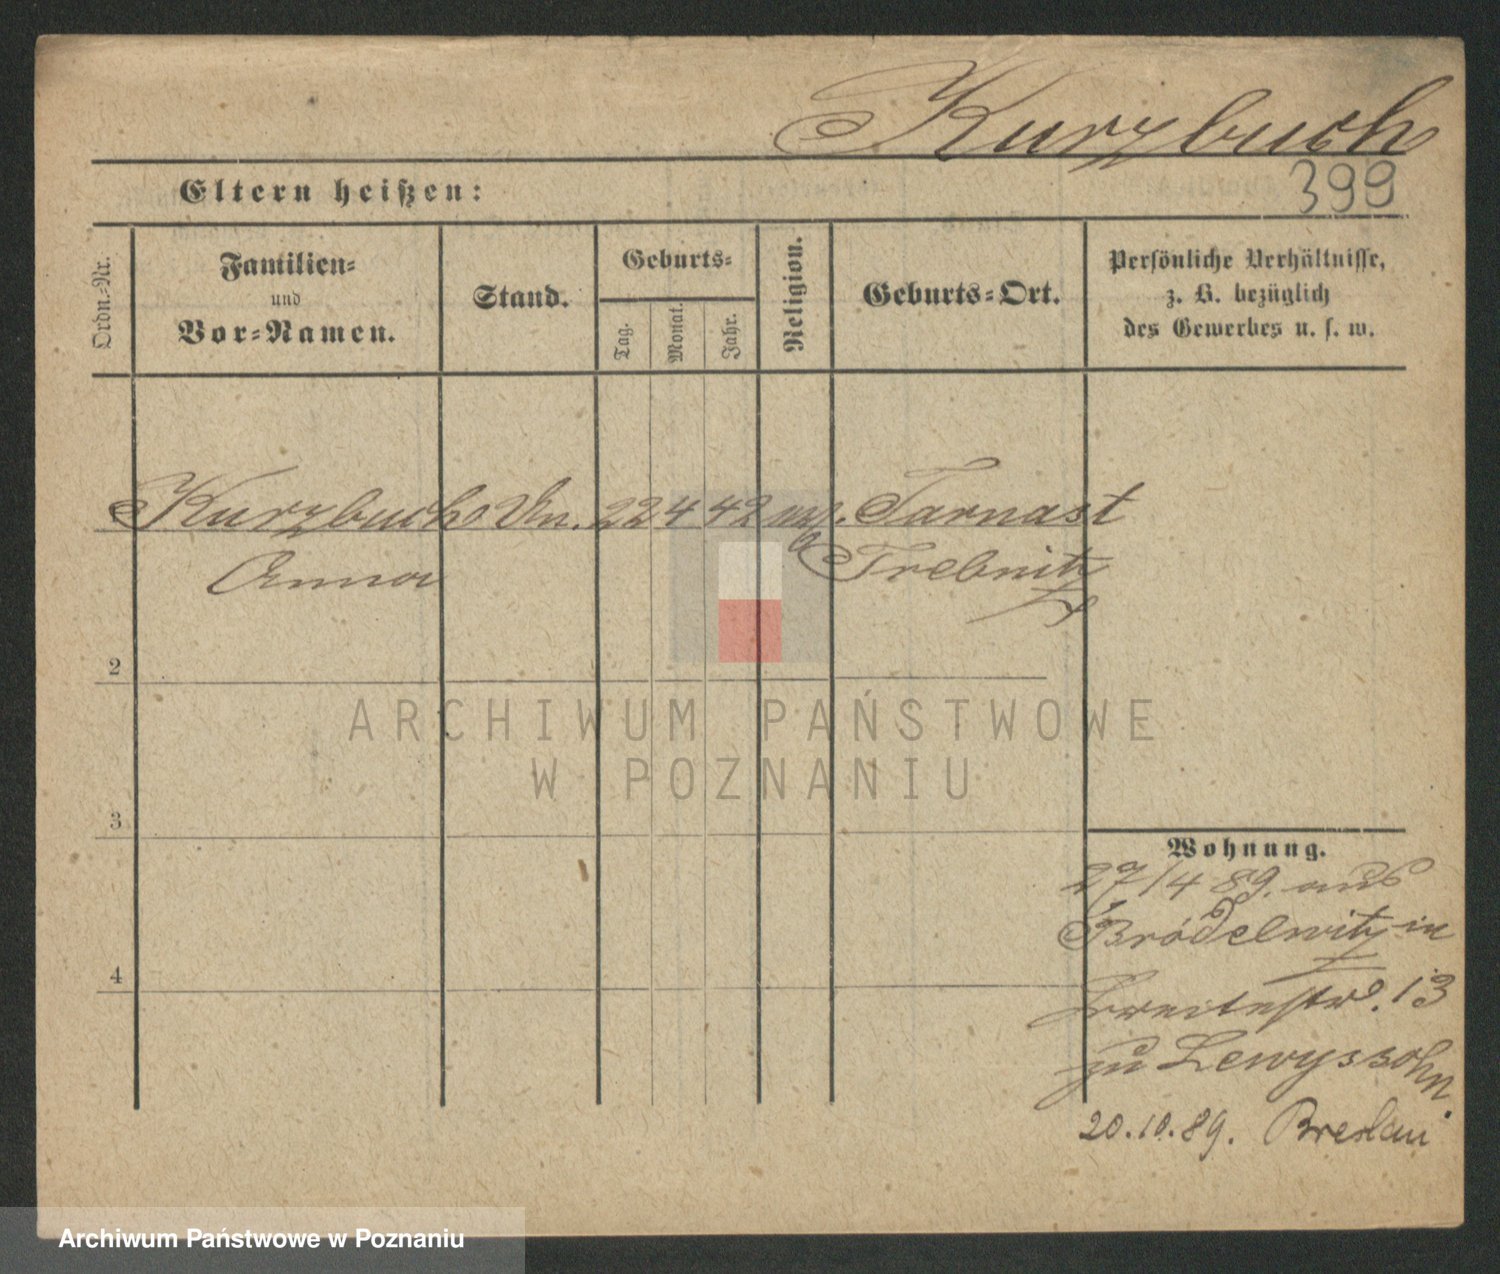 Kurzbuch
399
Eltern heißen:
Ordn.-Nr.
Familien-
und
Vor-Namen.
Stand.
Geburts-
Tag.
Monat.
Jahr.
Religion.
Geburts-Ort.
Persönliche Verhältnisse,
z. B. bezüglich
des Gewerbes u. s. w.
Kurzbuch 22 4 42 Tarnast
Anna Trebnitz
2
3
4
Wohnung.
27/4 89. aus
Brödelwitz in
Breitestr. 13
zu Lewyssohn.
20.10.89. Breslau
ARCHIWUM PAŃSTWOWE
W POZNANIU
Archiwum Państwowe w Poznaniu